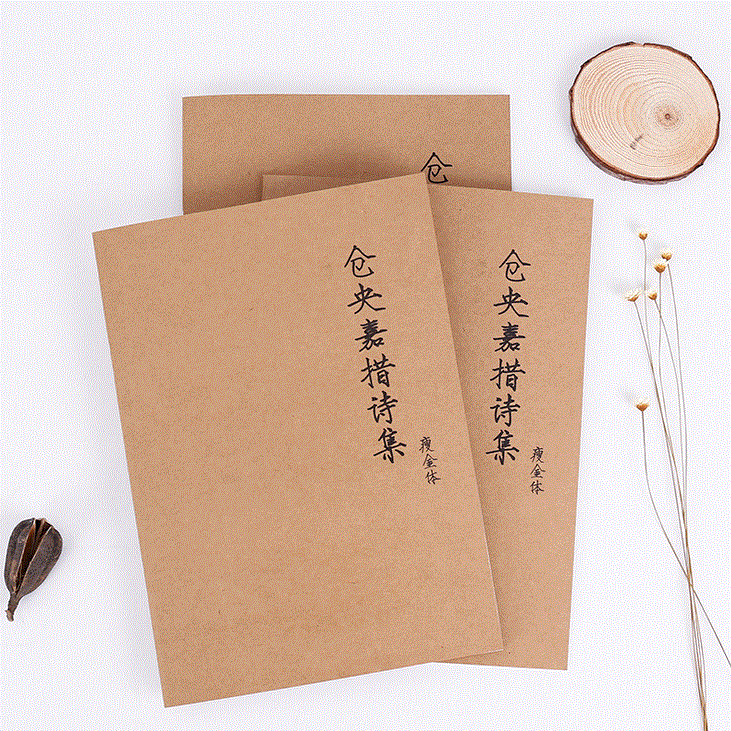 仓
仓央嘉措诗集
瘦金体
仓央嘉措诗集
瘦金体